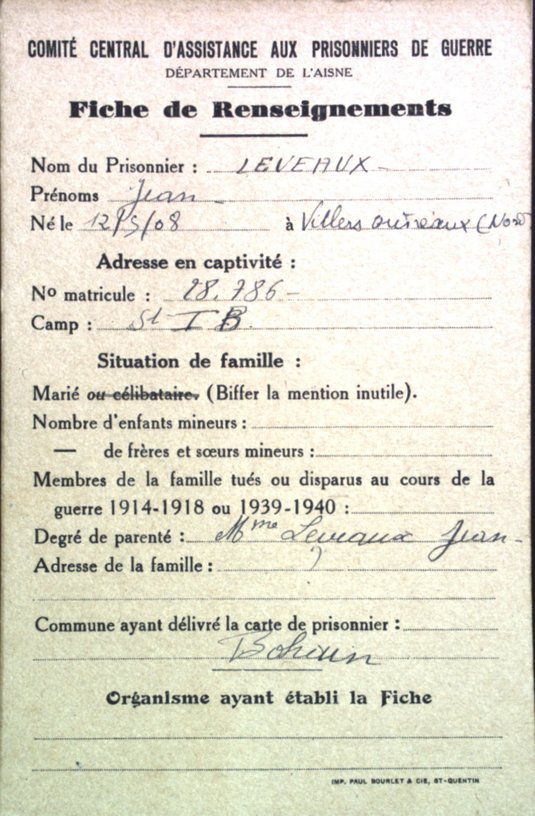 COMITÉ CENTRAL D'ASSISTANCE AUX PRISONNIERS DE GUERRE
DÉPARTEMENT DE L'AISNE
Fiche de Renseignements
Nom du Prisonnier : LEVEAUX
Prénoms Jean
Né le 12/5/08 à Villers outreaux (Nord)
Adresse en captivité :
No matricule : 28.786
Camp : St I B.
Situation de famille :
Marié ou célibataire. (Biffer la mention inutile).
Nombre d'enfants mineurs :
— de frères et sœurs mineurs :
Membres de la famille tués ou disparus au cours de la
guerre 1914-1918 ou 1939-1940 :
Degré de parenté : Mme Leveaux Jean
Adresse de la famille :
Commune ayant délivré la carte de prisonnier :
Bohain
Organisme ayant établi la Fiche
IMP. PAUL BOURLET & CIE, ST-QUENTIN